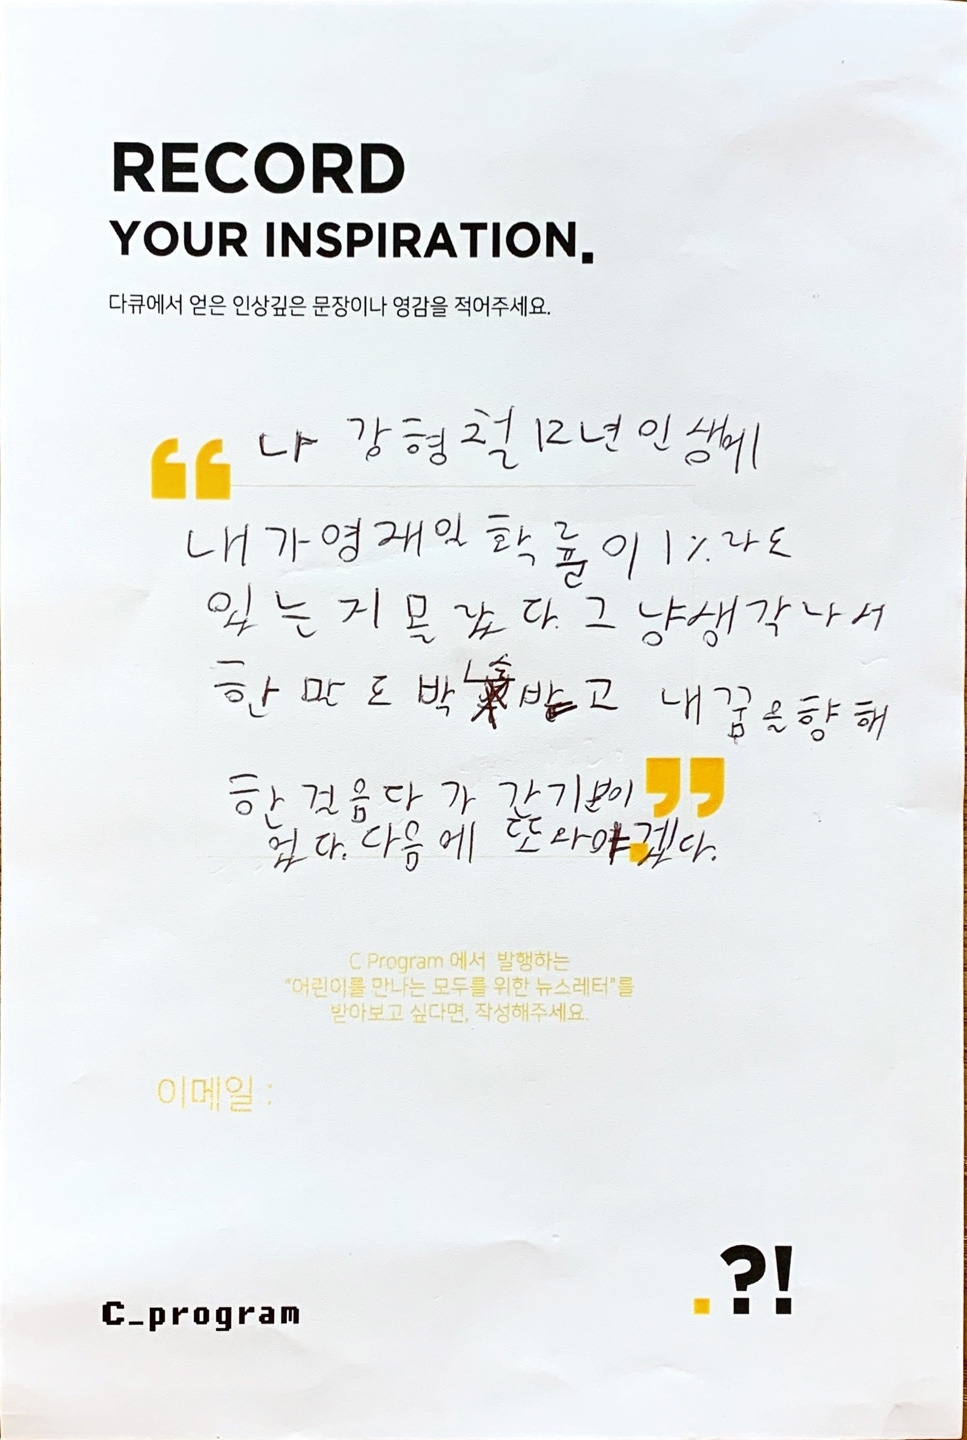 RECORD
YOUR INSPIRATION.
다큐에서 얻은 인상깊은 문장이나 영감을 적어주세요.
“ 나 강형철 12년 인생에
내가 영재일 확률이 1%라도
있는지 몰랐다. 그냥 생각나서
한 말도 박수 받고 내 꿈을 향해
한걸음 다가 간 기분이 ”
었다. 다음에 또 와야겠다.
C Program 에서 발행하는
“어린이를 만나는 모두를 위한 뉴스레터”를
받아보고 싶다면, 작성해주세요.
이메일 :
.?!
C_program